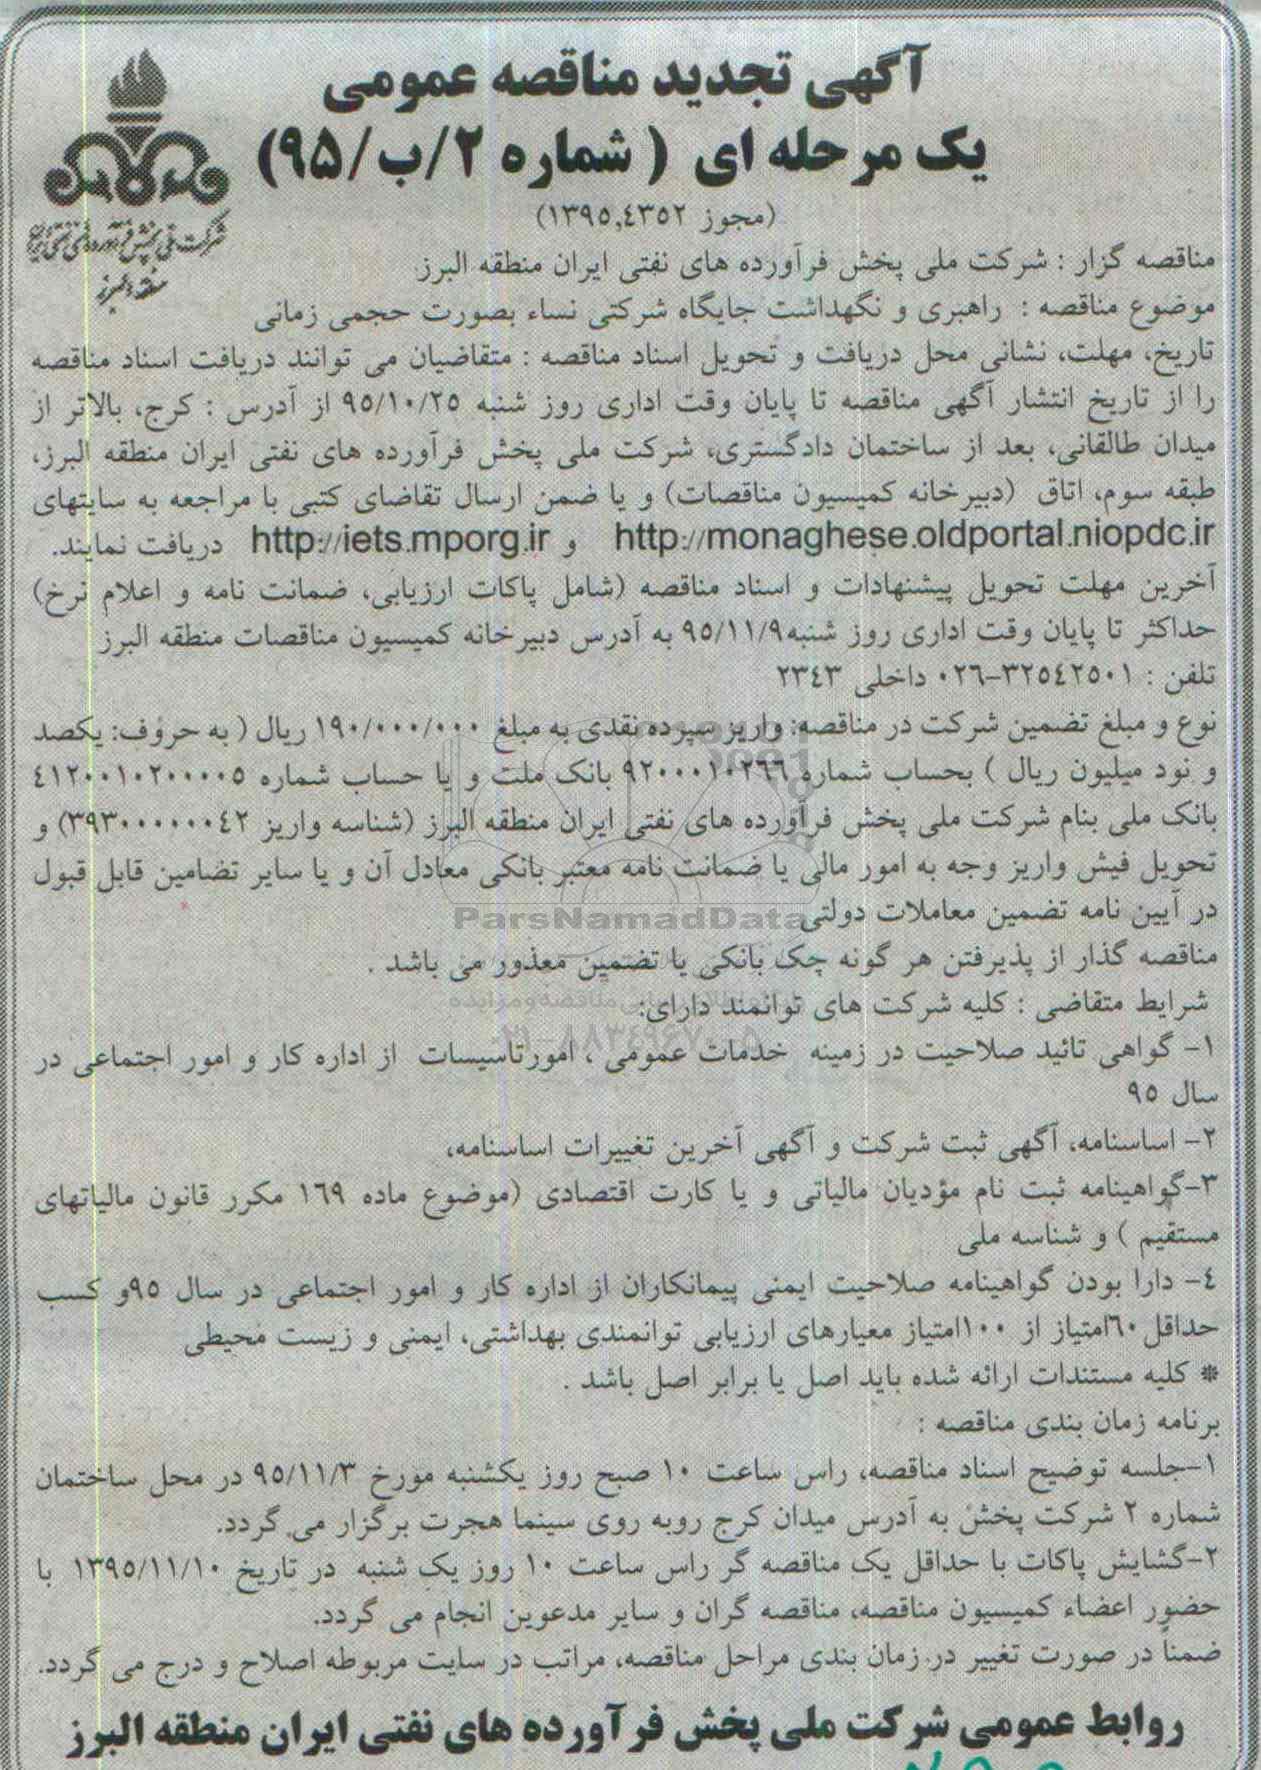 آگهی تجدید مناقصه عمومی
یک مرحله ای ( شماره ۲/ب/۹۵)
(مجوز ۱۳۹۵,۴۳۵۲)
شرکت ملی پخش فرآورده های نفتی ایران
منطقه البرز
مناقصه گزار : شرکت ملی پخش فرآورده های نفتی ایران منطقه البرز
موضوع مناقصه : راهبری و نگهداشت جایگاه شرکتی نساء بصورت حجمی زمانی
تاریخ، مهلت، نشانی محل دریافت و تحویل اسناد مناقصه : متقاضیان می توانند دریافت اسناد مناقصه
را از تاریخ انتشار آگهی مناقصه تا پایان وقت اداری روز شنبه ۹۵/۱۰/۲۵ از آدرس : کرج، بالاتر از
میدان طالقانی، بعد از ساختمان دادگستری، شرکت ملی پخش فرآورده های نفتی ایران منطقه البرز،
طبقه سوم، اتاق (دبیرخانه کمیسیون مناقصات) و یا ضمن ارسال تقاضای کتبی با مراجعه به سایتهای
http://monaghese.oldportal.niopdc.ir و http://iets.mporg.ir دریافت نمایند.
آخرین مهلت تحویل پیشنهادات و اسناد مناقصه (شامل پاکات ارزیابی، ضمانت نامه و اعلام نرخ)
حداکثر تا پایان وقت اداری روز شنبه۹۵/۱۱/۹ به آدرس دبیرخانه کمیسیون مناقصات منطقه البرز
تلفن : ۳۲۵۴۲۵۰۱-۰۲۶ داخلی ۲۳۴۳
نوع و مبلغ تضمین شرکت در مناقصه: واریز سپرده نقدی به مبلغ ۱۹۰/۰۰۰/۰۰۰ ریال ( به حروف: یکصد
و نود میلیون ریال ) بحساب شماره ۹۲۰۰۰۱۰۲۶۶ بانک ملت و یا حساب شماره ۴۱۲۰۰۱۰۲۰۰۰۰۵
بانک ملی بنام شرکت ملی پخش فرآورده های نفتی ایران منطقه البرز (شناسه واریز ۳۹۳۰۰۰۰۰۰۰۴۲) و
تحویل فیش واریز وجه به امور مالی یا ضمانت نامه معتبر بانکی معادل آن و یا سایر تضامین قابل قبول
در آیین نامه تضمین معاملات دولتی
ParsNamadData
مناقصه گذار از پذیرفتن هر گونه چک بانکی یا تضمین معذور می باشد .
شرایط متقاضی : کلیه شرکت های توانمند دارای:
۱- گواهی تائید صلاحیت در زمینه خدمات عمومی ، امورتاسیسات از اداره کار و امور اجتماعی در
سال ۹۵
۲- اساسنامه، آگهی ثبت شرکت و آگهی آخرین تغییرات اساسنامه،
۳-گواهینامه ثبت نام مؤدیان مالیاتی و یا کارت اقتصادی (موضوع ماده ۱۶۹ مکرر قانون مالیاتهای
مستقیم ) و شناسه ملی
۴- دارا بودن گواهینامه صلاحیت ایمنی پیمانکاران از اداره کار و امور اجتماعی در سال ۹۵و کسب
حداقل ۶۰امتیاز از ۱۰۰امتیاز معیارهای ارزیابی توانمندی بهداشتی، ایمنی و زیست محیطی
* کلیه مستندات ارائه شده باید اصل یا برابر اصل باشد .
برنامه زمان بندی مناقصه :
۱-جلسه توضیح اسناد مناقصه، راس ساعت ۱۰ صبح روز یکشنبه مورخ ۹۵/۱۱/۳ در محل ساختمان
شماره ۲ شرکت پخش به آدرس میدان کرج روبه روی سینما هجرت برگزار می گردد.
۲-گشایش پاکات با حداقل یک مناقصه گر راس ساعت ۱۰ روز یک شنبه در تاریخ ۱۳۹۵/۱۱/۱۰ با
حضور اعضاء کمیسیون مناقصه، مناقصه گران و سایر مدعوین انجام می گردد.
ضمناً در صورت تغییر در زمان بندی مراحل مناقصه، مراتب در سایت مربوطه اصلاح و درج می گردد.
روابط عمومی شرکت ملی پخش فرآورده های نفتی ایران منطقه البرز